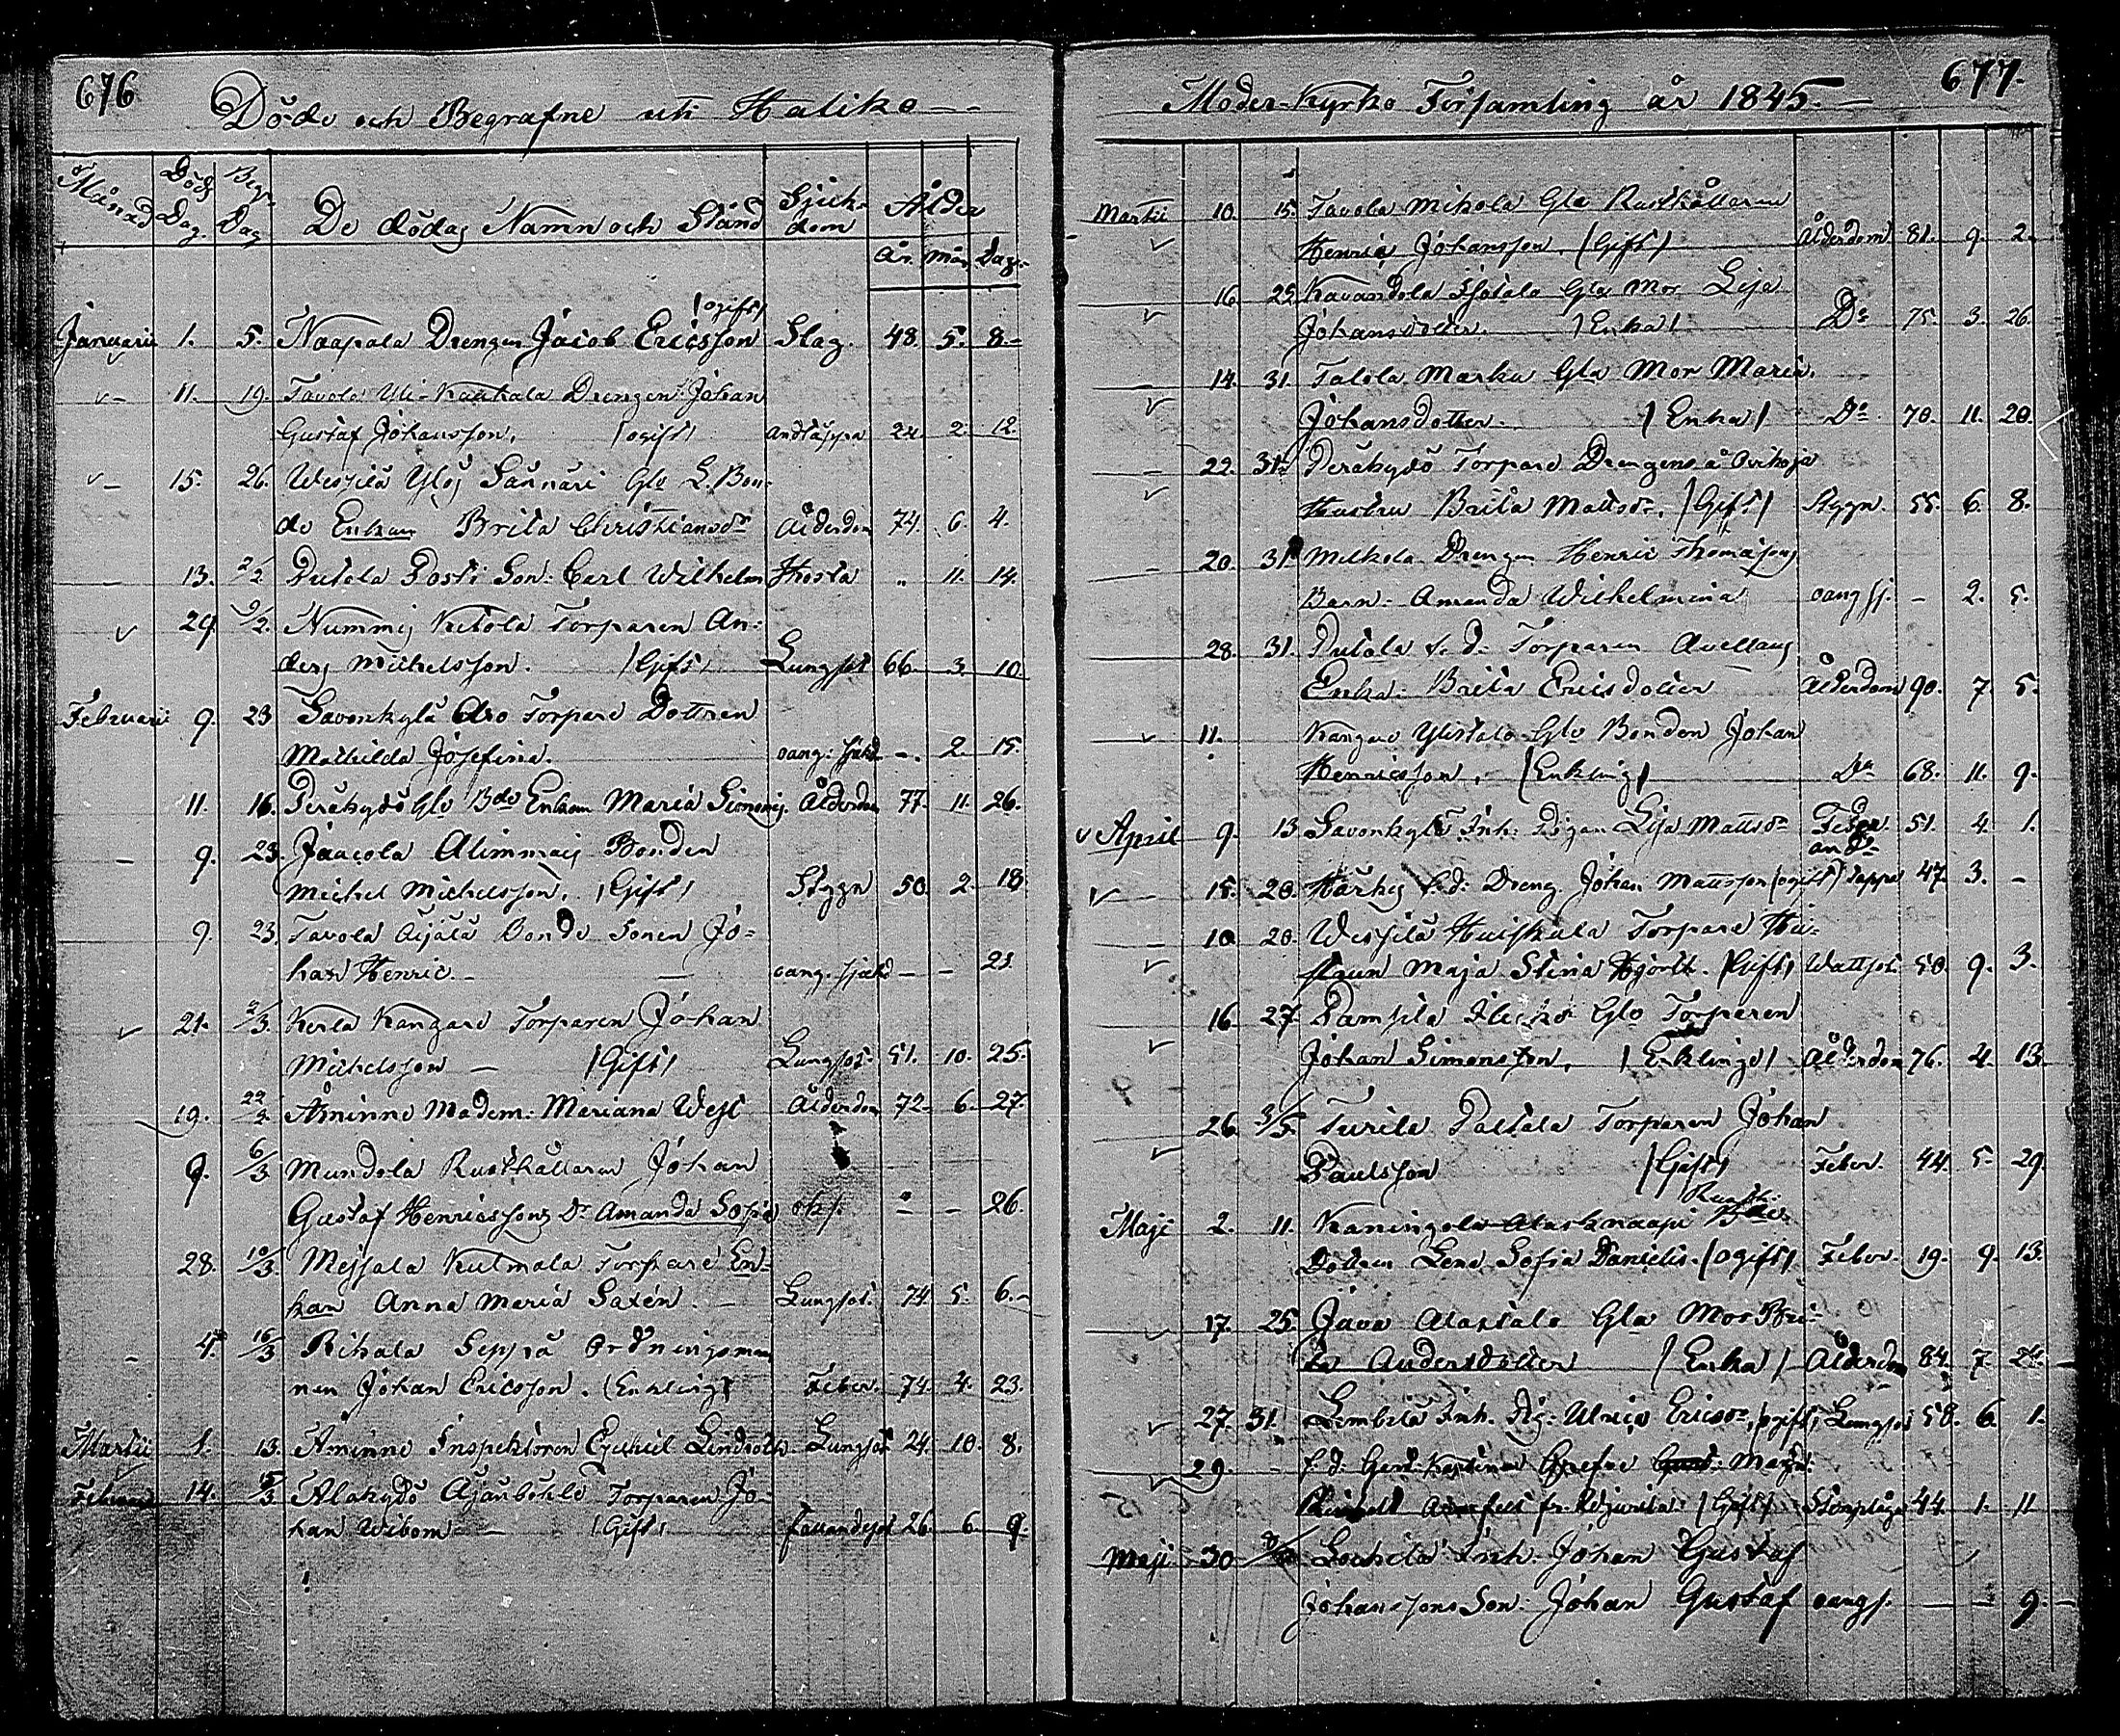 676
Döde och Begrafne uti Haliko
Månad Död Dag. Begr. Dag De dödas Namn och Stånd Sjuk-dom Ålder
År. mån. Dag.
(ogift)
Januarii 1. 5. Naapala Drengen Jacob Ericsson Slag. 48. 5. 8.
11. 19. Tavola Uli-Kaukala Drengen Johan
Gustaf Johansson, (ogift) andtäppa 24. 2. 12.
15. 26. Wessilä Ylös Sannäri Gla S. Bon-
de Enkan Brita Christiansdr Ålderdom 74. 6. 4.
13. 2/2 Putola Posti Son: Carl Wilhelm Hosta " 11. 14.
29 9/2. Nummis Ketola Torparen An-
ders Michelsson. (Gift) Lungsot 66. 3. 10.
Februari 9. 23 Savonkylä Aro Torpare Dottren
Mathilda Josefina. oang: sjukd -. 2. 15.
11. 16. Peräkydö Gla Bde Enkan Maria Simonis. Ålderdom 77. 11. 26.
9. 23. Jaacola Alimmais Bonden
Michel Michelsson, (Gift) Stygn 50. 2. 18
9. 23. Tavola Äijälä Bonde Sonen Jo-
han Henric - oang. sjukd - - 21.
21. 2/3. Kerla Kangare Torparen Johan
Michelsson - (Gift) Lungsot. 51. 10. 25.
19. 22/2 Åminne Madem: Mariana West Ålderdom 72. 6. 27.
9. 6/3 Mundola Rusthållaren Johan
Gustaf Henricssons Dr Amanda Sofia okj. " - 26.
28. 10/3. Mejsala Kulmala Torpare En-
kan Anna Maria Saxén. Lungsot. 74 5. 6.
4. 16/3 Rihala Seppä Ordningsman
nen Johan Ericsson. (Enkling) Feber. 74. 4. 23.
Martii 1. 13. Åminne Inspektoren Lindroth Lungsot 24. 10. 8.
Februari 14. 15/3 Alakydö Torparen Jo-
han Wibom - (Gift) fallandesot 26. 6. 9.
677.
Moder-Kyrko Församling år 1845.
Martii 10. 15. Tavola Mikola Gla Rusthållaren
Henric Johansson, (Gift) Ålderdom 81. 9. 2.
16 25 Kavandola Isotalo Gla Mor Lisa
Johansdotter. (Enka) Do 75. 3. 26.
14. 31. Talola Marku Gla Mor Maria
Johansdotter. (Enka) Do 70. 11. 20.
22. 31. Peräkydö Torpare Drengens
Hustru Brita Mattsdr. (Gift) Stygn. 55. 6. 8.
20. 31 Melkola Drengen Henric Thomassons
Barn: Amanda Wilhelmina oang sj. - 2. 5.
28. 31. Putola f. d. Torparen Avellans
Enka: Brita Ericsdotter Ålderdom 90. 7. 5.
11. Kangare Ylistalo Gla Bonden Johan
Henricsson, (Enkling) Do 68. 11. 9.
April 9. 13 Savonkylä Inh: Pigan Lisa Mattsdr Feber. 51. 4. 1.
15. 20. f. d. Dreng. Johan Mattsson (ogift) and täppa 47 3. -
10 20. Wessilä Huiskula Torpare Hu-
strun Maja Stina Hjorth. (Gift) Wattsot. 50. 9. 3.
16. 27 Pamsila Gla Torparen
Johan Simonsson, (Enkling) Ålderdom 76. 4. 13
26. 3/5. Turila Paltala Torparen Johan
Paulsson (Gift) Feber. 44. 5. 29.
Rusth:
Maji 2. 11. Kaningola Alasknaapi
Dottren Lena Sofia Danielis. (ogift) Feber. 19. 9. 13.
17. 25. Java Alastalo Gla Mor Bri-
ta Andersdotter (Enka) Ålderdom 84. 7.
27. 31. Lembilä Inh. Pig: Ulrica Ericsdr, (ogift) Lungsot 58. 6. 1.
29. f. d. Magn.
(Gift) 44. 1. 11
Maji 30 Lochila Inh. Johan Gustaf
Johanssons Son: Johan Gustaf oangs. - - 9.